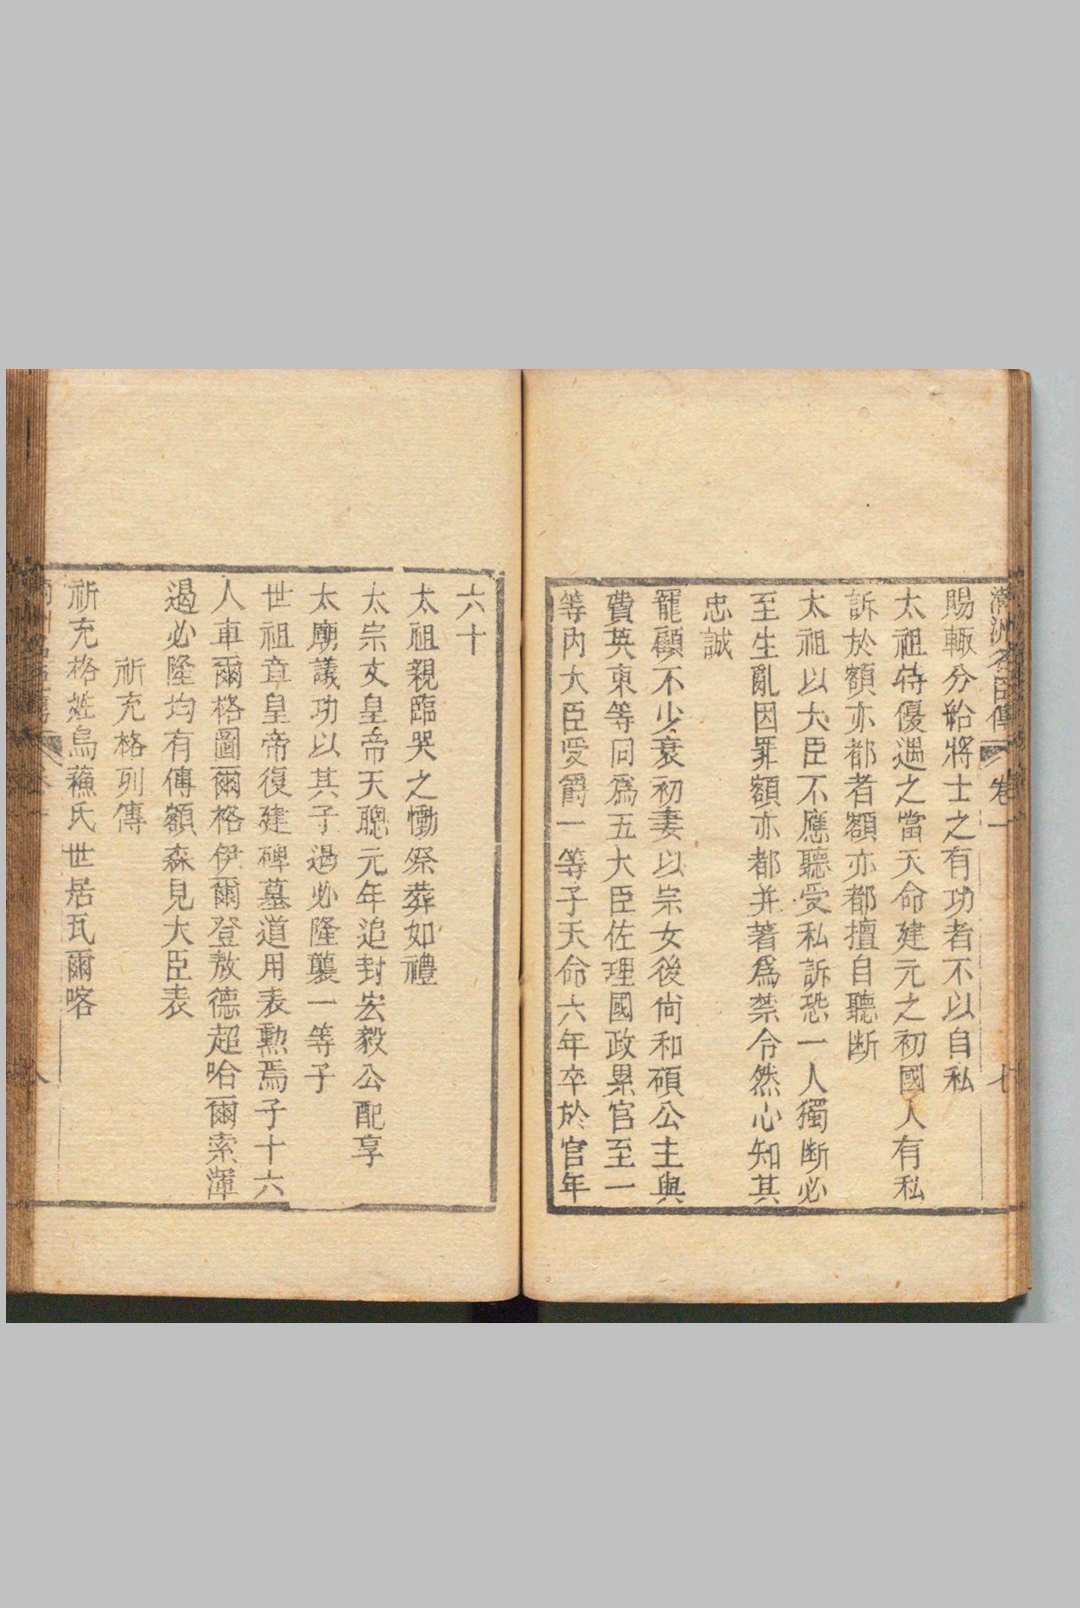 滿洲名臣傳 卷一 七
賜輙分給將士之有功者不以自私
太祖特優遇之當天命建元之初國人有私
訴於額亦都者額亦都擅自聽斷
太祖以大臣不應聽受私訴恐一人獨斷必
至生亂因罪額亦都并著爲禁令然心知其
忠誠
寵顧不少衰初妻以宗女後尙和碩公主與
費英東等同爲五大臣佐理國政累官至一
等內大臣受爵一等子天命六年卒於官年
六十
太祖親臨哭之慟祭葬如禮
太宗文皇帝天聰元年追封宏毅公配享
太廟議功以其子遏必隆襲一等子
世祖章皇帝復建碑墓道用表勲焉子十六
人車爾格圖爾格伊爾登敖德超哈爾索渾
遏必隆均有傳額森見大臣表
祈充格列傳
祈充格姓烏蘓氏世居瓦爾喀
八